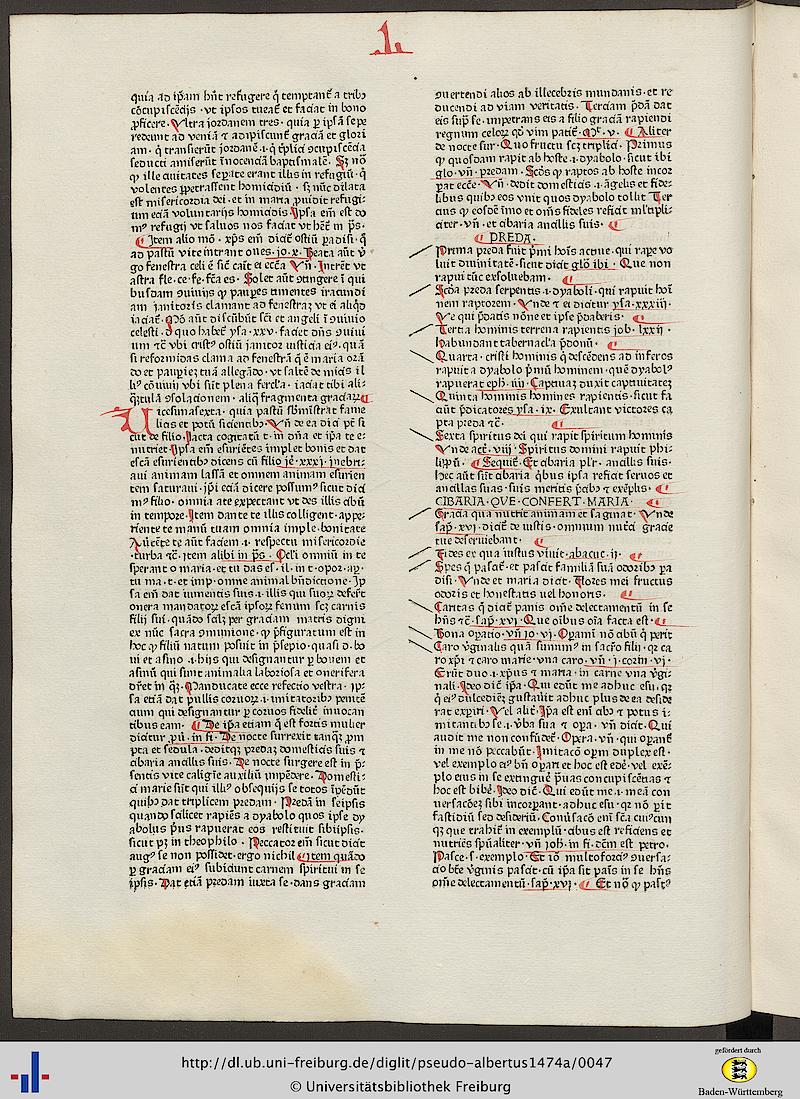 L
quia ad ip̄am hn̄t refugere q̄ temptant᷑ a tribꝫ
ꝯcupiscēcijs · vt ipsos tueat᷑ et faciat in bono
ꝓficere · Vltra jordanem tres · quia ꝑ ip̄sā sepe
redeunt ad veniā ⁊ adipiscunt᷑ graciā et glori
am · q̄ transierūt jordanē · i · q̄ tp̄lici ꝯcupiscēcia
seducti amiserūt īnocenciā baptismalē · Sꝫ nō
volentes ꝑpetrassent homicidiū · sꝫ nūc dilata
est misericordia dei · et in maria ꝓuidit refugi-
um eciā voluntarijs homicidis Ipsa em̄ est do
mꝰ refugij vt saluos nos faciat vt hēt᷑ in p̄s ·
Item alio mō · xp̄s em̄ dicat᷑ ostiū padisi · q̄
ad pastū vite intrant oues · jo · x · Beata aūt v̄
go fenestra celi ē
busdam ꝯuiuijs ꝙ pauꝑes timentes iracundi
am janitoris clamant ad fenestraꝫ vt ei aliqd
celesti · d̓ quo habet᷑ ysa · xxv · faciet dn̄s ꝯuiui
um ⁊c̄ vbi cristꝰ ostiū janitor iusticia eiꝰ · quā
si reformidas clama ad fenestrā q̄ ē maria orā
do et pauꝑiēꝫ tuā allegādo · vt saltē de micis il
liꝰ ꝯuiuij vbi sūt plena fercl̓a · iaciat tibi ali-
q̄tulā ꝯsolacionem · aliq̄ fragmenta graciaꝝ
Uicesimasexta · quia pastū sb̓ministrat fame
licis et potū sicientibꝫ · Vn̄ de ea dici pt̄ si
cut de filio · Jacta cogitatū t · in dn̄a et ip̄a te e-
nutriet Ipsa em̄ esuriētes implet bonis et dat
escā esurientibꝫ dicens cū filio je᷑ · xxxj · jnebri-
aui animam lassā et omnem animam esurien
tem saturaui · jp̄i eciā dicere possumꝰ sicut dici
mꝰ filio · omnia a te expectant vt des illis cibū
in tempore · Item dante te illis colligent · appe-
riente te manū tuam omnia imple · bonitate
Auertēte te aūt faciem · i · respectū misericordie
· turba ⁊c̄ · jtem alibi in p̄s · Ocl̓i omniū in te
sperant o maria · et tu das es · il · in t · opor · aꝑ ·
tu ma · t · et imp · omne animal bn̄dictione · Ip
sa em̄ dat iumentis suis · i · illis qui suoꝝ defert᷑
onera mandatoꝝ escā ipsoꝝ fenum scꝫ carnis
filij sui · quādo salꝫ per graciam matris digni
ex nūc sacra ꝯmunione · ꝙ ꝑfiguratum est in
hoc ꝙ filiū natum posuit in p̄sepio · quasi d · bo
ui et asino · i · hijs qui designantur ꝑ bouem et
asinū qui sunt animalia laboriosa et onerifera
sa etiā dat pullis coruoꝝ · i · imitatoribꝫ penitē
cium qui designantur ꝑ coruos fidelit᷑ inuocan
tibus eam · De ip̄a etiam q̄ est fortis mulier
dicitur ꝓū · in fi · De nocte surrexit tanqꝫ ꝓm
pta et sedula · deditqꝫ predaꝫ domesticis suis ⁊
cibaria ancillis suis · De nocte surgere est in p̄-
sentis vite caligīe auxiliū impēdere · Domesti-
ci marie sūt qui illiꝰ obsequijs se totos īpēdūt
quibꝫ dat triplicem predam · Predā in seipsis
quando scilicet rapiēs a dyabolo quos ipse dy
abolus p̄us rapuerat eos restituit sibiipsis ·
sicut pꝫ in theophilo · Peccator em̄ sicut dicit
augꝰ se non possidet · ergo nichil Item quādo
ꝑ graciam eiꝰ subiciunt carnem spiritui in se
ipsis · Dat etiā predam iuxta se · dans graciam
ꝯuertendi alios ab illecebris mundanis · et re
ducendi ad viam veritatis · Terciam p̄dā dat
eis sup̄ se · impetrans eis a filio graciā rapiendi
regnum celoꝝ qd̓ vim patit᷑ · Mt᷑ · v · Aliter
de nocte sur · Quo fructu scꝫ triplici · Primus
ꝙ quosdam rapit ab hoste · i · dyabolo · sicut ibi
glo · vn̄ · predam · Scd̓s ꝙ raptos ab hoste incor
ꝑat ecc̄e · Vn̄ · dedit domesticis · i · āgelis et fide-
libus quibꝫ eos vnit quos dyabolo tollit Ter
cius ꝙ eosdē īmo et om̄s fideles reficit ml̓tipli-
citer · vn̄ · et cibaria ancillis suis ·
PREDA ·
Prima preda fuit p̄mi hoīs acque · qui rape vo
luit diuinitatē · sicut dicit glo᷒ ibi · Que non
rapui tūc exsoluebam ·
Scd̓a preda serpentis · i · dyaboli · qui rapuit hoī
nem raptorem · Vnde ⁊ ei dicitur ysa · xxxiij ·
Ve qui p̄datis nōne et ipse p̄daberis ·
Tertia hominis terrena rapientis job · lxxij ·
habundant tabernacl̓a p̄donū ·
Quarta · cristi hominis q̄ descēdens ad inferos
rapuit a dyabolo p̄mū hominem · quē dyabolꝰ
rapuerat eph · iiij · Captiuaꝫ duxit captiuitateꝫ
Quinta hominis homines rapientis · sicut fa
ciūt p̄dicatores ysa · ix · Exultant victores ca
pta preda ⁊c̄ ·
Sexta spiritus dei qui rapit spiritum hominis
Vnde act᷑ · viij · Spiritus domini rapuit phi-
lippū · Sequit᷑ · Et cibaria pl̓r · ancillis suis ·
Hec aūt sūt cibaria q̄bus ipsa reficit seruos et
ancillas suas · suis meritis p̄cibꝫ ⁊ exēplis ·
CIBARIA · QVE · CONFERT · MARIA ·
Gracia qua nutrit animam et saginat · Vnde
sap᷑ · xvj · dicit᷑ de iustis · omnium nutci gracie
tue deseruiebant ·
Fides ex qua iustus viuit · abacuc · ij ·
Spes q̄ pascit᷑ · et pascit familiā suā odoribꝫ pa
disi · Vnde et maria dicit · Flores mei fructus
odoris et honestatis uel honoris ·
Caritas q̄ dicit᷑ panis om̄e delectamentū in se
hn̄s ⁊c̄ · sap᷑ · xvj · Que oībus oīa facta est ·
Bona oꝑatio · vn̄ jo · vj · Oꝑamī nō cibū q̄ perit
Caro v̓ginalis quā sumimꝰ in sacr̄o filij · qꝛ ca
ro xp̄i ⁊ caro marie · vna caro · vn̄ · j · corin · vj ·
Erūt duo · i · xp̄us ⁊ maria · in carne vna v̓gi-
nali · Ideo dic̄ ip̄a · Qui edūt me adhuc esu · qꝛ
q̄ eiꝰ dulcediēꝫ gustauit adhuc plus de ea deside
rat exꝑiri · Vel alit᷑ · Ip̄a est em̄ cibꝫ ⁊ potus i-
mitantibꝫ se · i · v̓ba sua ⁊ oꝑa · vn̄ dicit · Qui
audit me non confūdet᷑ · Opera · vn̄ · qui oꝑant᷑
in me nō peccabūt · Imitacō oꝑm duplex est ·
vel exemplo eiꝰ bn̄ oꝑari et hoc est edē · vel exē-
plo eius in se extinguē p̄uas concupiscētias ⁊
hoc est bibē · Ideo dic̄ · Qui edūt me · i · meā con
uersacōeꝫ sibi incorꝑant · adhuc esu · qꝛ nō ꝑit
fastidiū sed desideriū · Conūsacō em̄ sc̄a cuicun
qꝫ que trahit᷑ in exemplū · cibus est reficiens et
nutriēs spūaliter · vn̄ joh᷑ · in fi · dc̄m est petro ·
Pasce · s · exemplo · Et iō multoforciꝰ ꝯuersa-
cio bt̄e v̓ginis pascit · cū ip̄a sit panis in se hn̄s
om̄e delectamentū · sap᷑ · xvj · Et nō ꝙ pastꝰ
http://dl.ub.uni-freiburg.de/diglit/pseudo-albertus1474a/0047
© Universitätsbibliothek Freiburg
gefördert durch
Baden-Württemberg